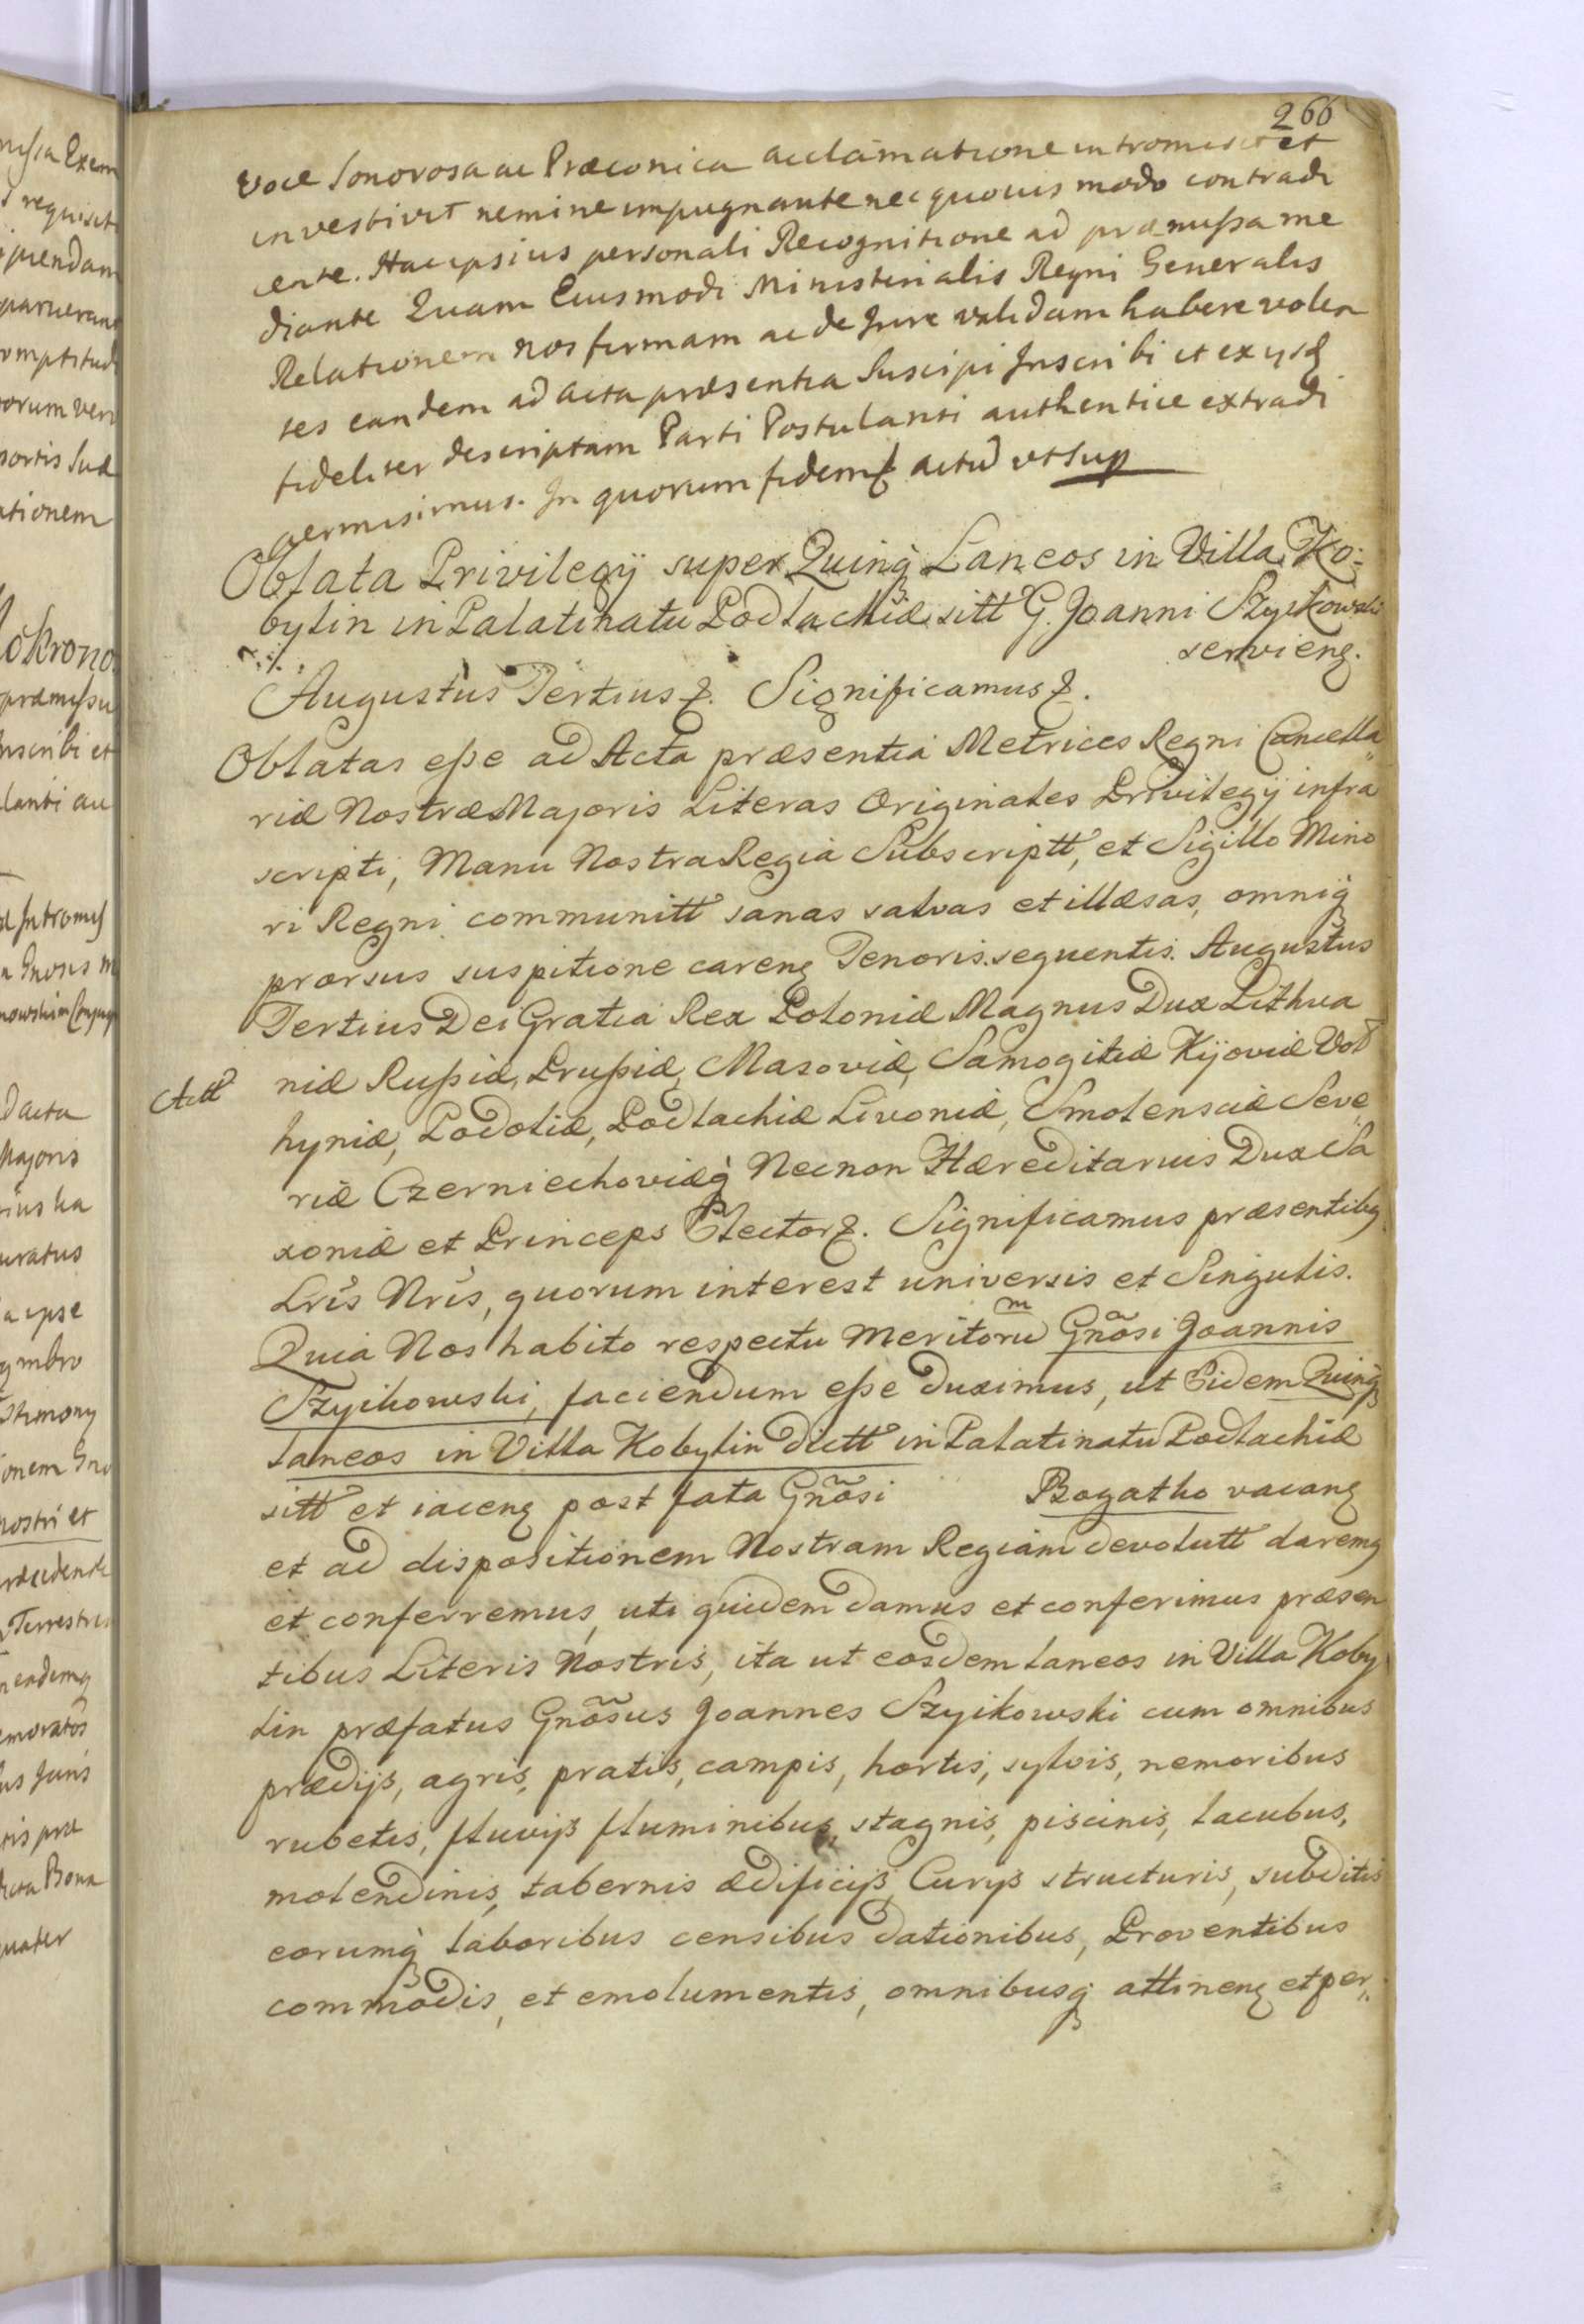 266
voce Sonorosa ac Præconica acclamatione intromisit et
investivit nemine impugnante nec quovis modo contradi
cente. Hac ipsius personali Recognitione ad præmissa me
diante Quam Eiusmodi Ministerialis Regni Generalis
Relationem nos firmam ac de Jure validam habere volen
tes eandem ad acta præsentia Suscipi Inscribi et ex ysd
fideliter descriptam Parti Postulanti authentice extradi
permisimus. In quorum fidem & actũ ut Sup
Oblata Privilegij super Quinq̃ Laneos in Villa Ko:
bylin in Palatinatu Podlachiæ sitt G. Joanni Szyikowski
servieng.
Augustus Tertius &. Significamus &.
Oblatas esse ad Acta præsentia Metrices Regni Cancella
riæ Nostræ Majoris Literas Originales Privilegij infra
scripti, Manu Nostra Regia Subscriptt, et Sigillo Mino
ri Regni communitt sanas salvas et illæsas, omniq̃
prorsus suspitione careng Tenoris sequentis. Augustus
Tertius Dei Gratia Rex Poloniæ Magnus Dux Lithua
Actt
niæ Russiæ, Prussiæ, Masoviæ, Samogitiæ Kijoviæ Vol
hyniæ, Podoliæ, Podlachiæ Livoniæ, Smolensciæ Seve
riæ Czerniechoviæq̃ Necnon Hæreditarius Dux Sa
xoniæ et Princeps Elector &. Significamus præsentibg
Lris Nris, quorum interest universis et Singulis.
Quia Nos habito respectu Meritorum Gnõsi Joannis
Szyikowski, faciendum esse duximus, ut Eidem Quinq̃
laneos in Villa Kobylin dictt in Palatinatu Podlachiæ
sitt et iaceng post fata Gnõsi Bogatko vacang
et ad dispositionem Nostram Regiam devolutt daremg
et conferremus, uti quidem damus et conferimus præsen
tibus Literis Nostris, ita ut eosdem laneos in Villa Koby
lin præfatus Gnõsus Joannes Szyikowski cum omnibus
prædijs, agris, pratis, campis, hortis, sylvis, nemoribus
rubetis, fluvijs fluminibus, stagnis, piscinis, lacubus,
molendinis, tabernis ædificijs, Curijs structuris, subditis
eorumq̃ laboribus censibus dationibus, Proventibus
commodis, et emolumentis, omnibusq̃ attineng et per„